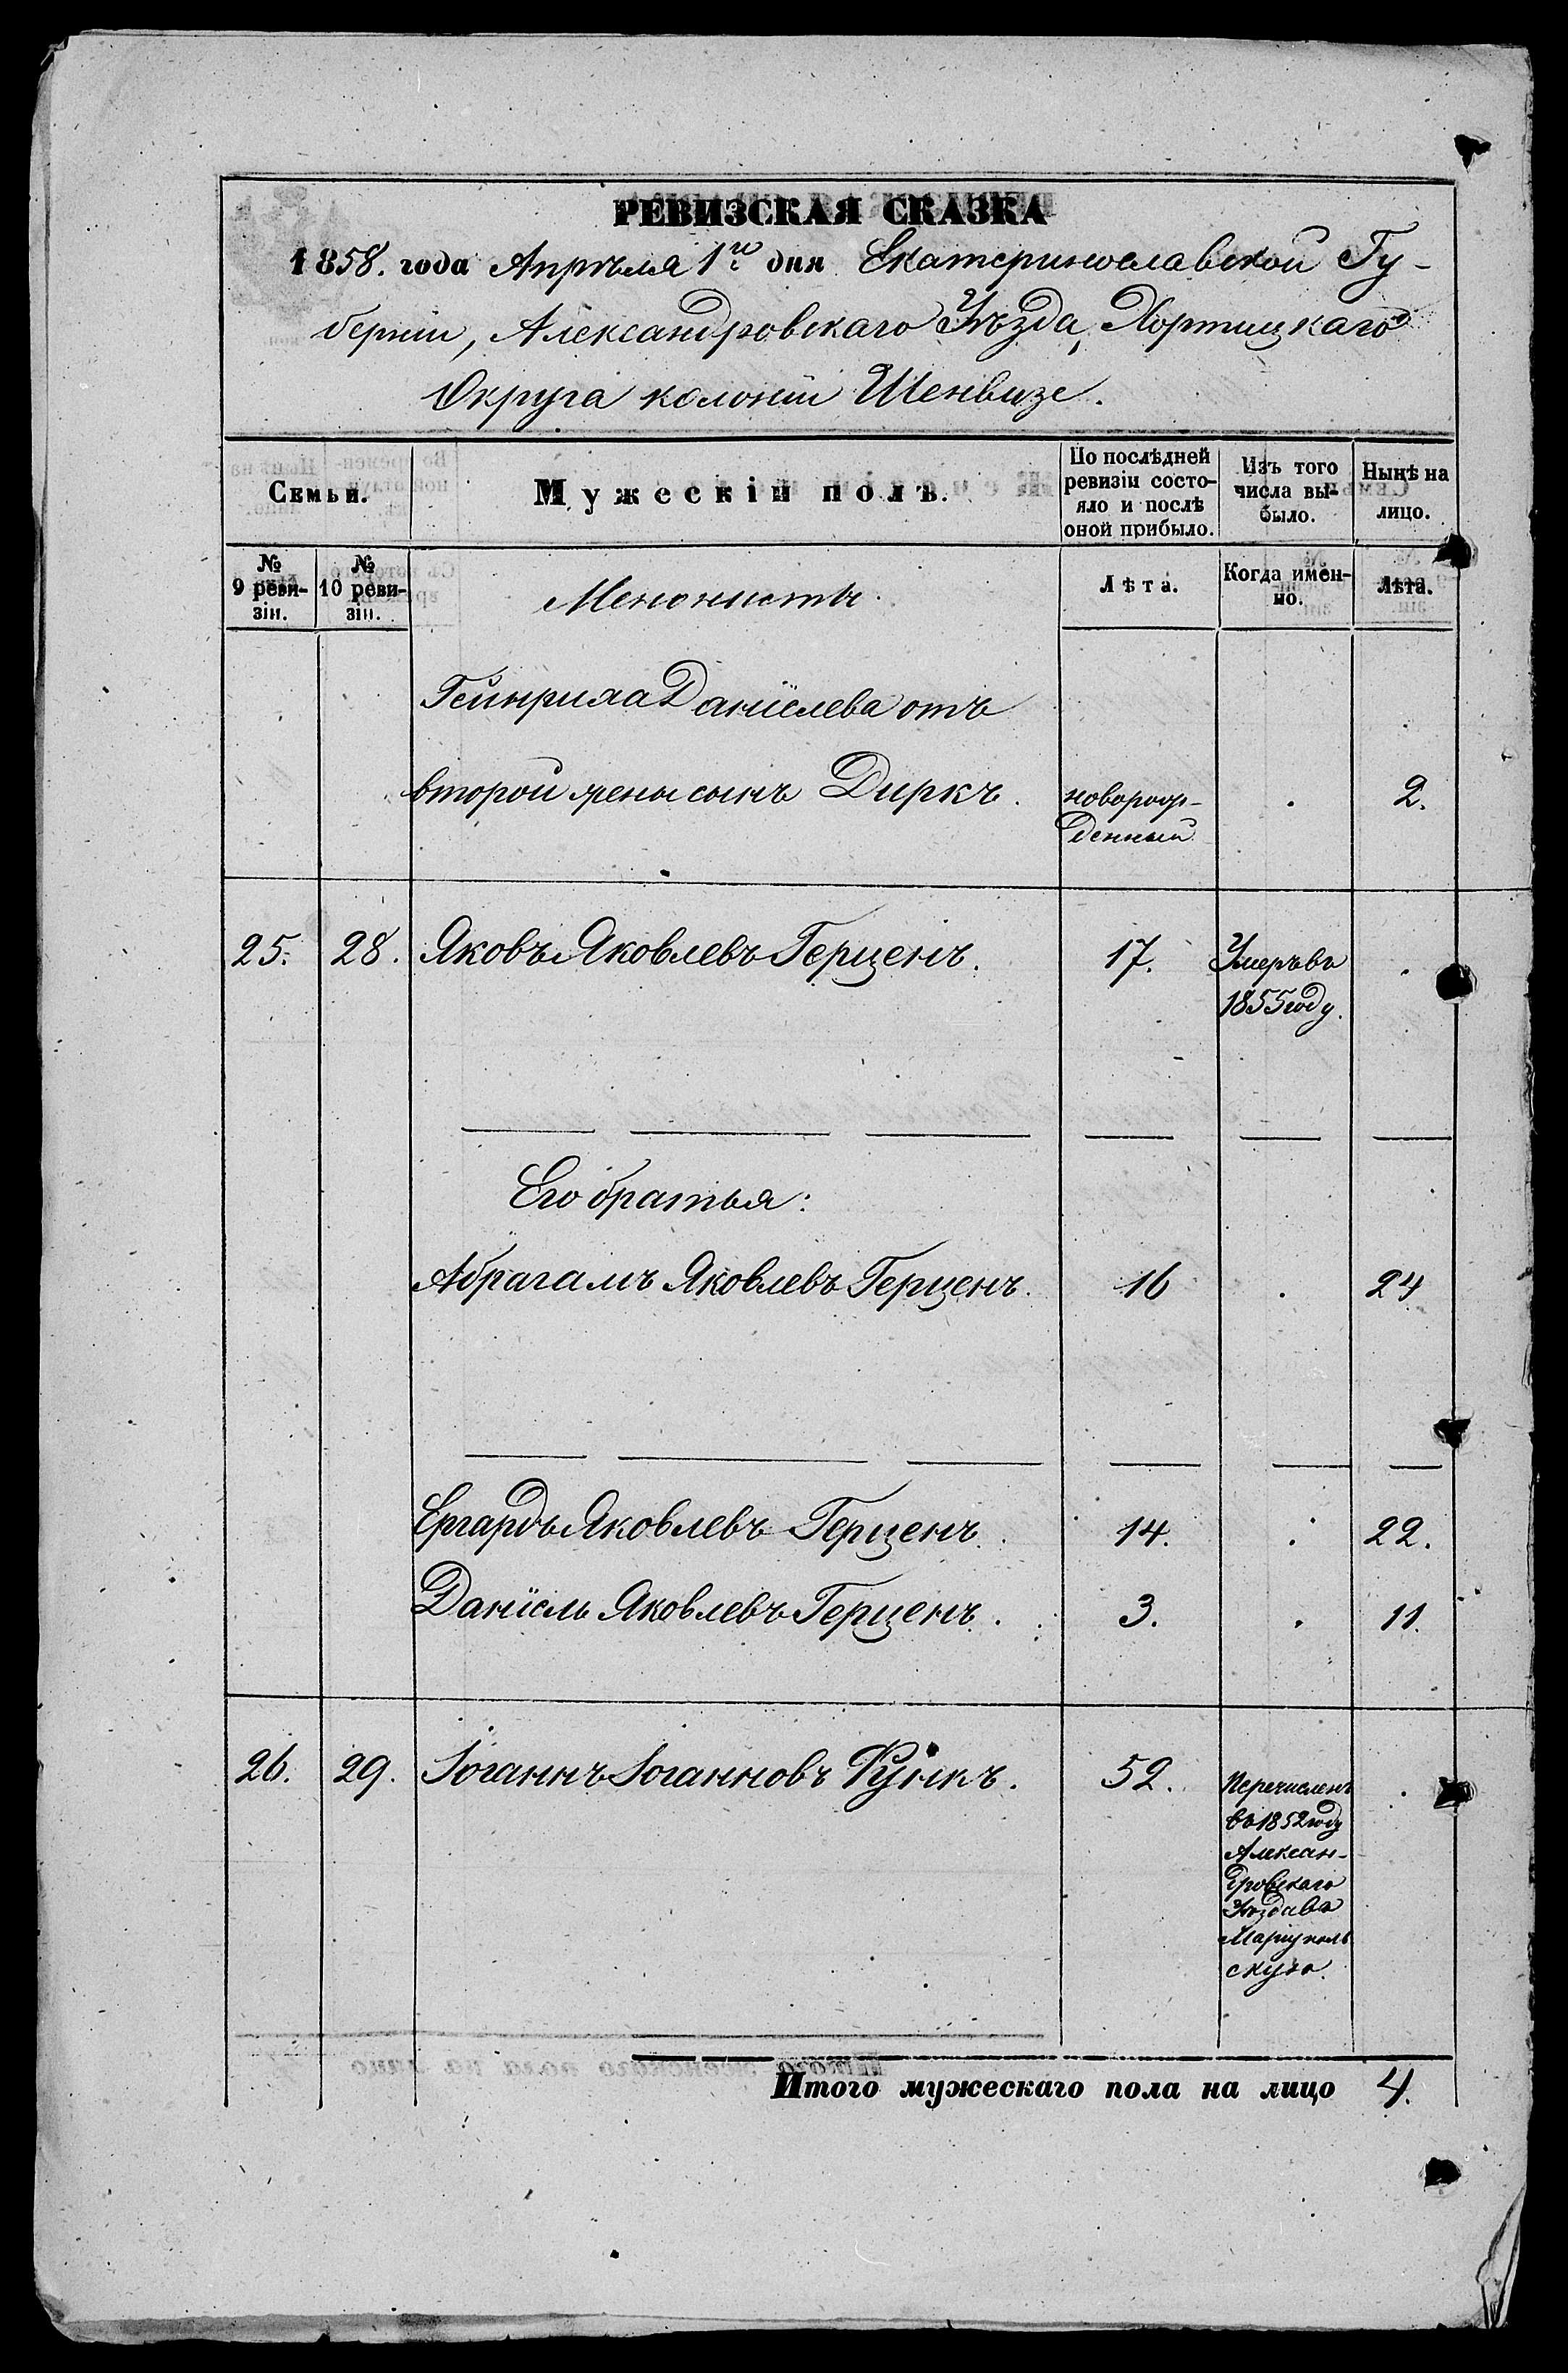 РЕВИЗСКАЯ СКАЗКА
1858. года Апрѣля 1го дня Екатеринославской Гу-
берніи, Александровскаго Уѣзда, Хортицкаго
Округа колоніи Шенвизе.
Семьи.
Мужескій полъ.
По послѣдней
ревизіи состо-
яло и послѣ
оной прибыло.
Изъ того
числа вы-
было.
Нынѣ на
лицо.
№
9 реви-
зіи.
№
10 реви-
зіи.
Менонисты.
Лѣта.
Когда имен-
но.
Лѣта.
Гейнриха Даніелева отъ
второй жены сынъ Диркъ. новорож- . 2.
денный
25. 28. Яковъ Яковлевъ Герценъ. 17. Умеръ въ .
1855 году.
Его братья:
Абрагамъ Яковлевъ Герценъ. 16 . 24
Ергардъ Яковлевъ Герценъ. 14. . 22.
Даніель Яковлевъ Герценъ. 3. . 11.
26. 29. Іоганнъ Іоганновъ Функъ. 52. Перечисленъ .
въ 1852 году
Алексан-
дровскаго
Уѣзда въ
Маріуполь
скую.
Итого мужескаго пола на лицо 4.